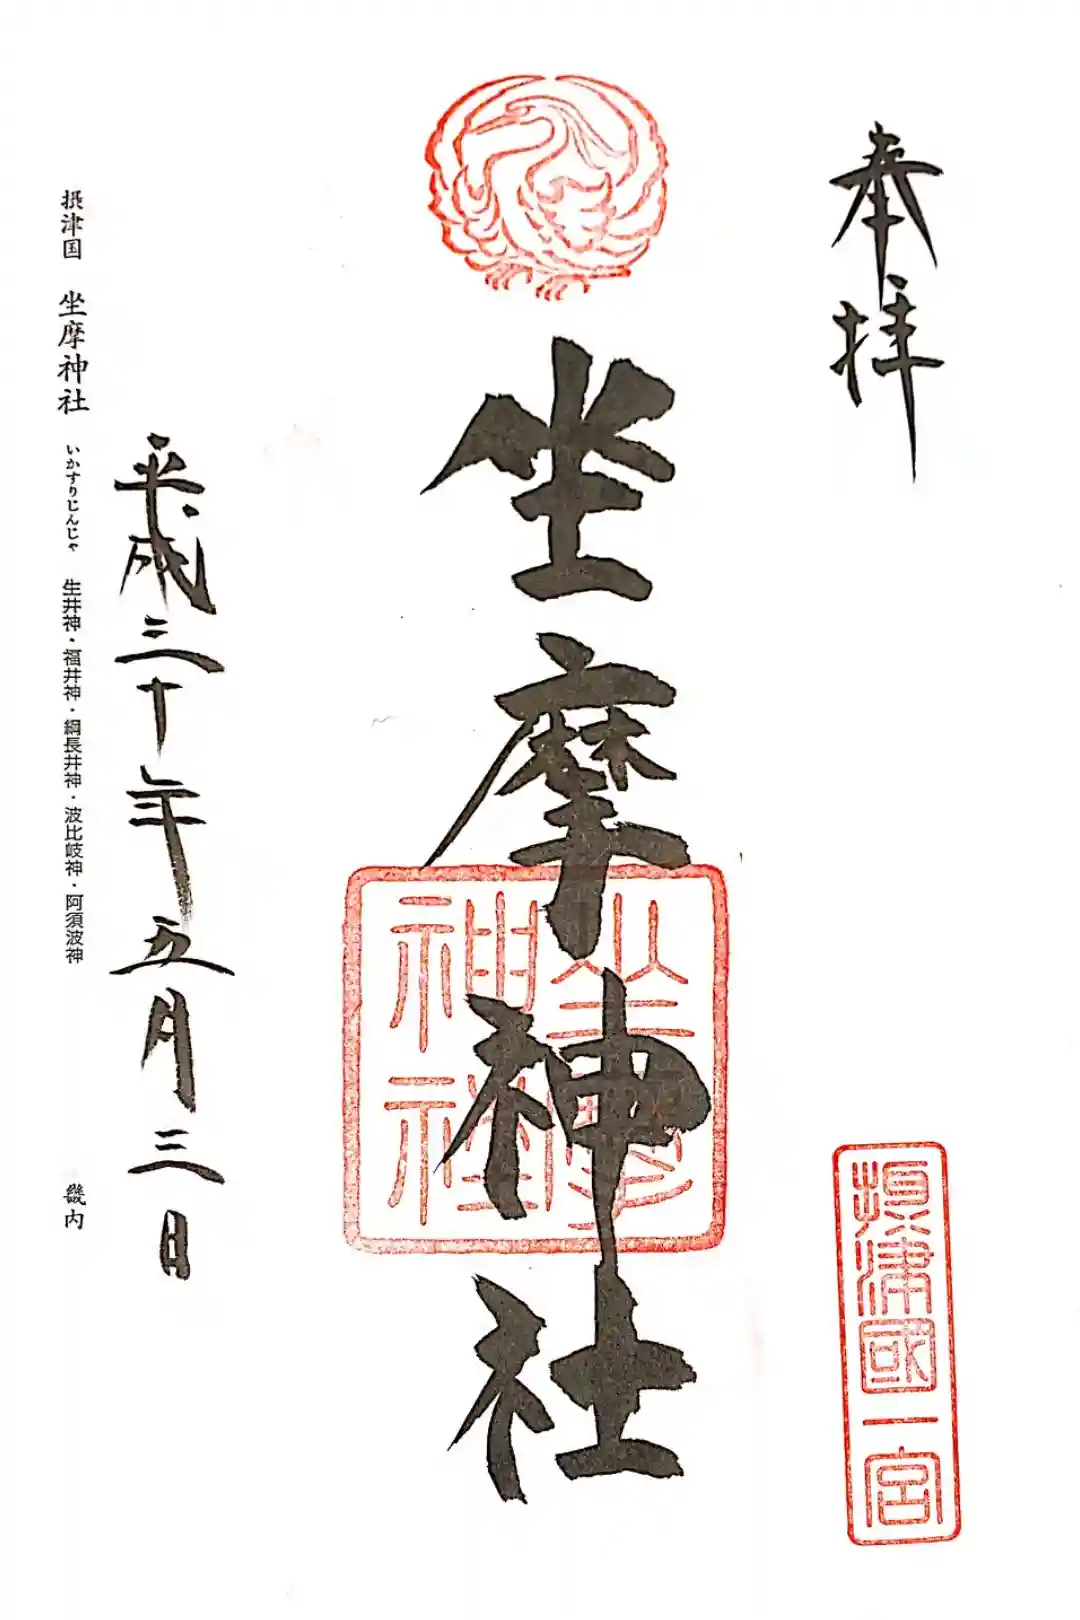 奉拝
摂津國一宮
坐摩神社
坐摩
神社
平成三十年五月三日
摂津国 坐摩神社 いかすりじんじゃ 生井神・福井神・綱長井神・波比岐神・阿須波神 畿内